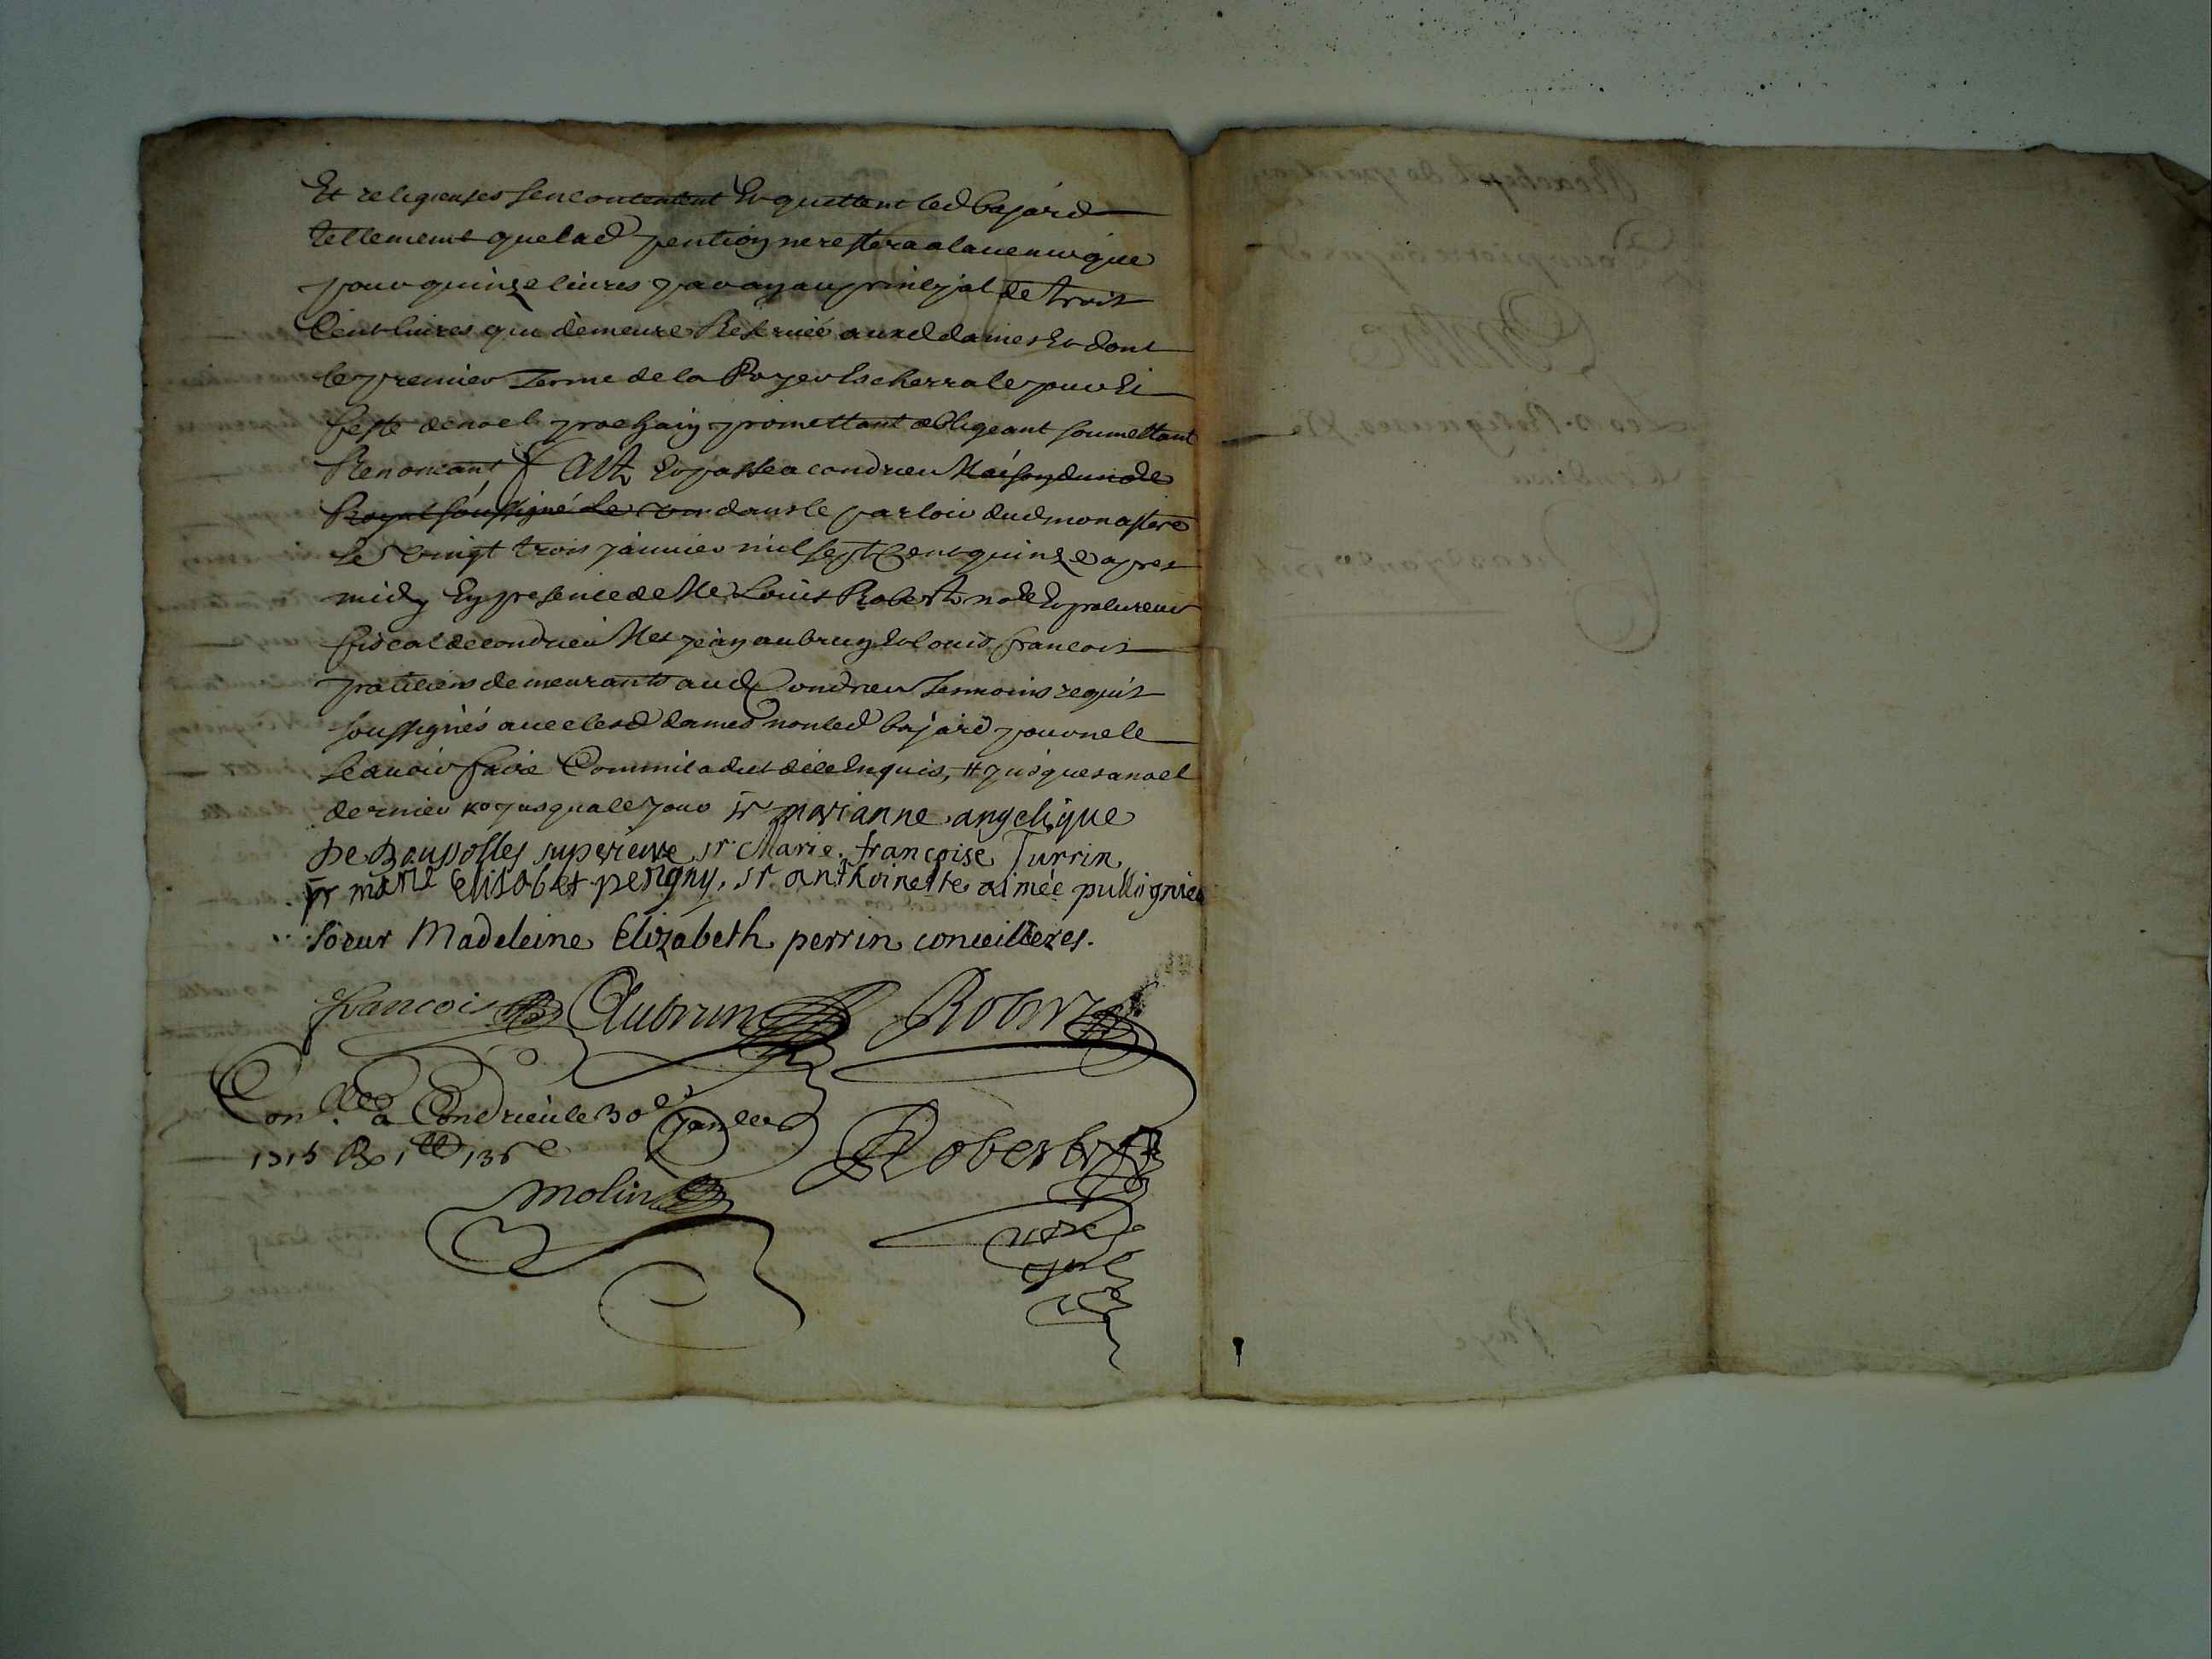 Et religieuses sen contentent Et quittent led bajard
tellement que lad pention ne restera a lauenir que
pour quinze liures par an au principal de trois
Cent liures qui demeure Reseruée auxd dames Et dont
le premier terme de la Payer Escherra le jour Et
feste de noel prochain promettant obligeant soumettant
Renoncant fait Et passé a condrieu Maison du no.re
Royal soussigné Le dans le parloir dud monastere
Le vingt trois januier mil sept Cent quinze apres
midy En presence de Me Louis Robert no.re Et procureur
fiscal de condrieu Mes jean aubrun Et louis francois
praticiens demeurants aud Condrieu Temoins requis
soussignés auec lesd dames non led bajard pour ne le
scauoir faire Comme a dit de ce Enquis, # jusques a noel
dernier jusqu a le jour sr marianne angelique
De Boussolles superieure sr Marie francoise Turrin
sr marie Elisabet perigny, sr anthoinette aimée
soeur Madeleine Elizabeth perrin conseilleres.
francois Aubrun Robert
Con.lle a Condrieu le 30e Jan.er
1715
Robert
molin
no.re